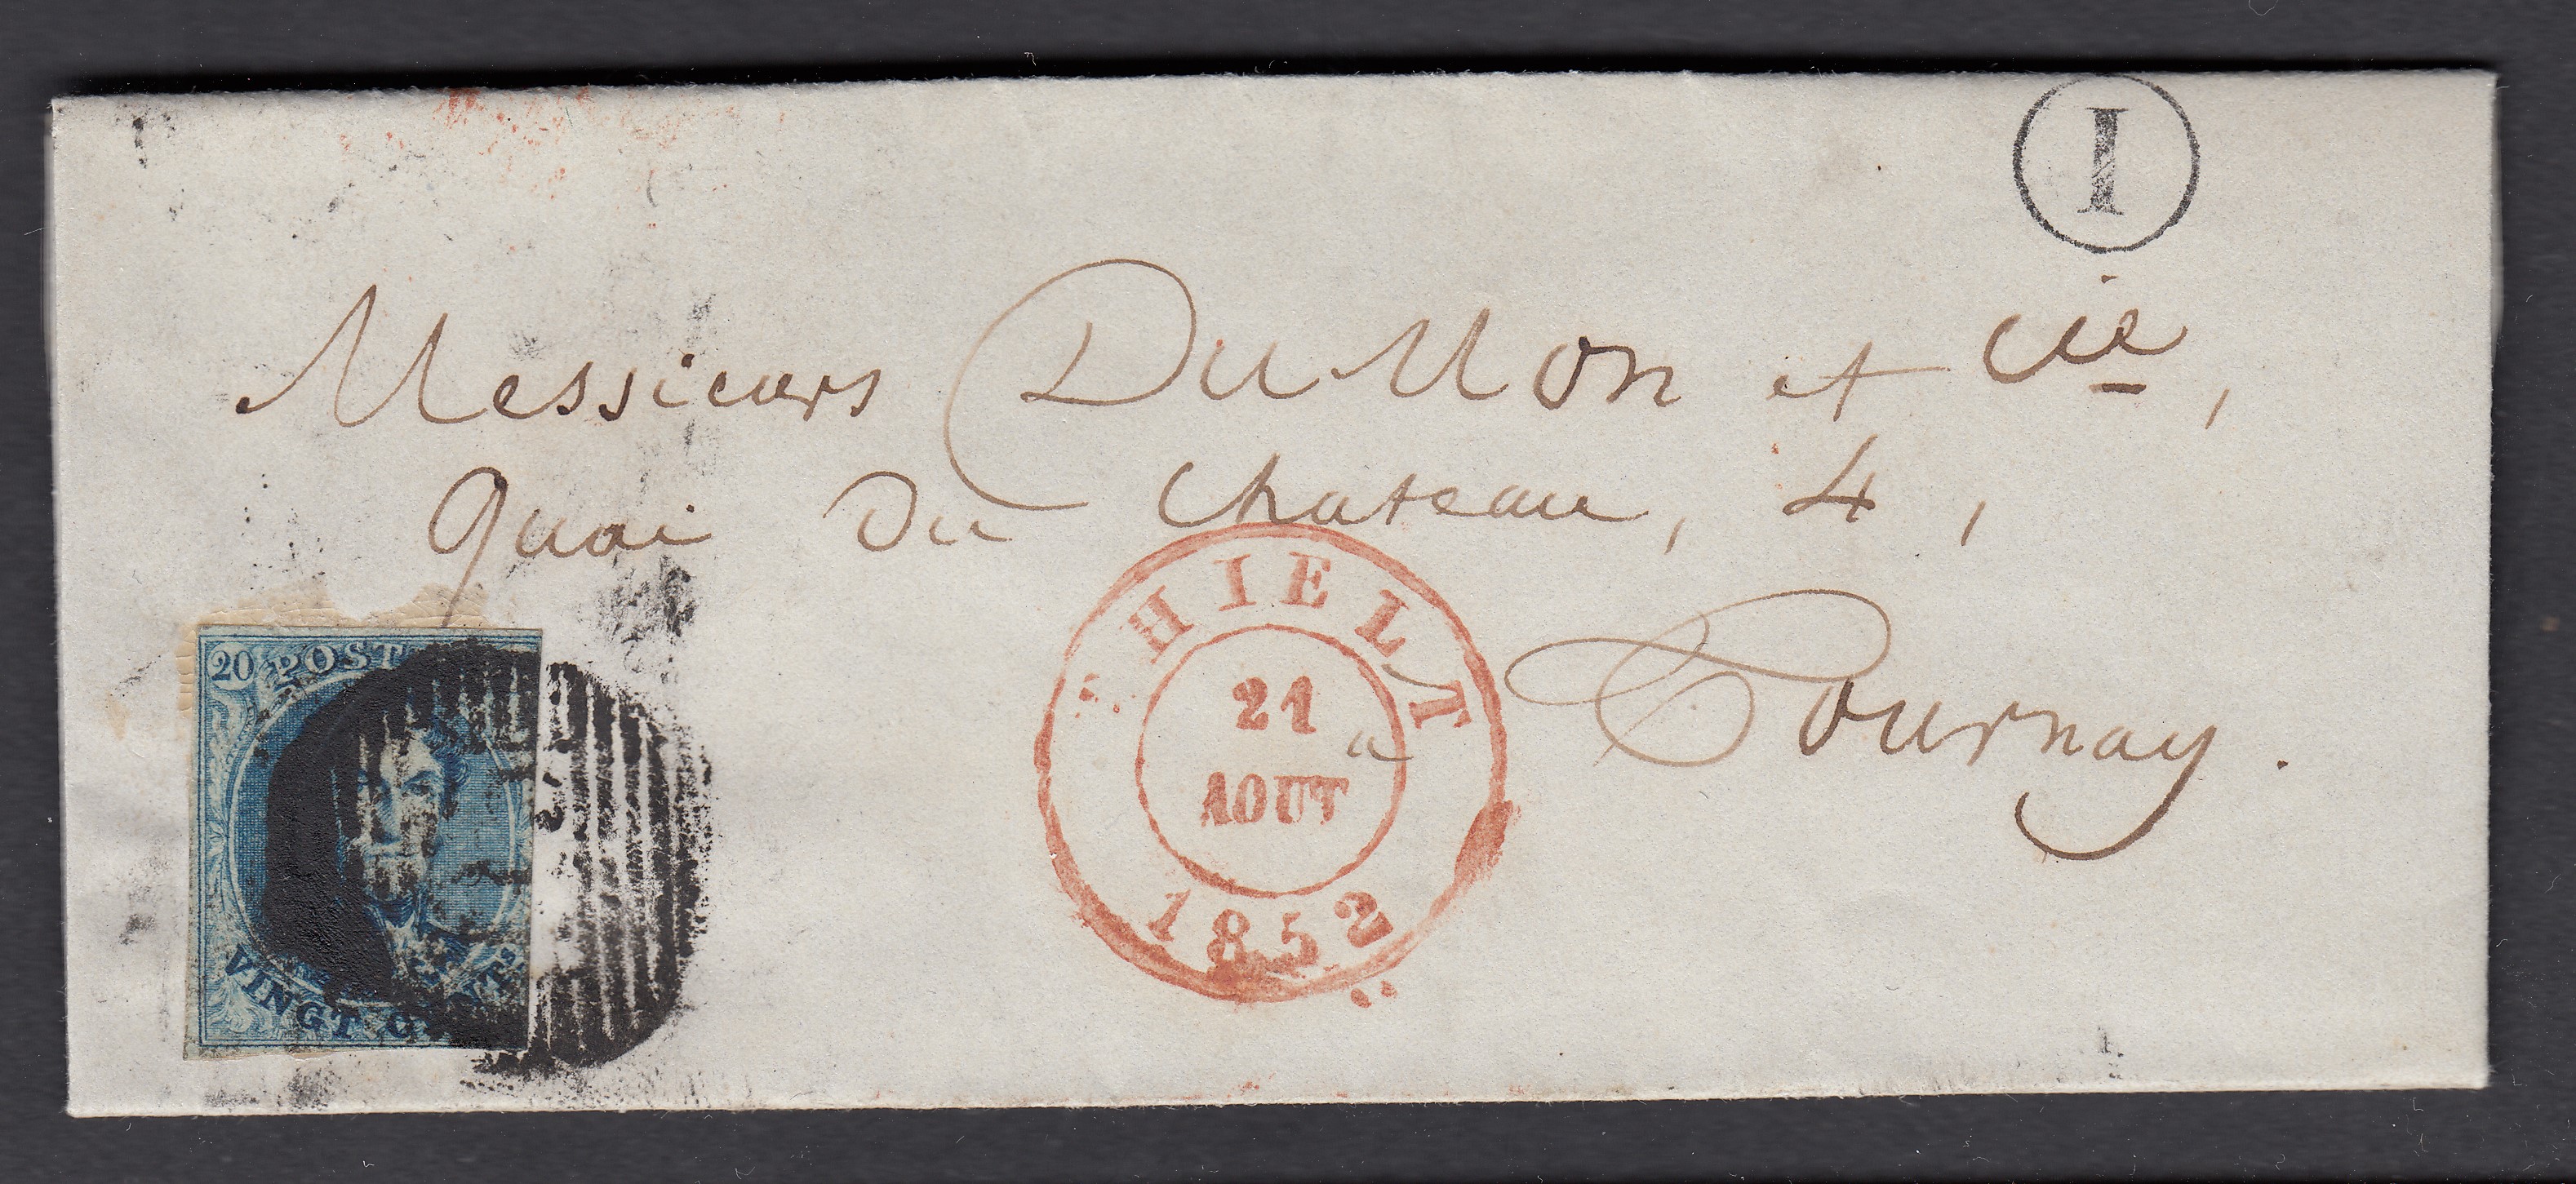 I
Messieurs DuMon et Cie,
Quai du Chateau, 4,
à Tournay.
THIELT
21
AOUT
1852
20 POST
VINGT C TS